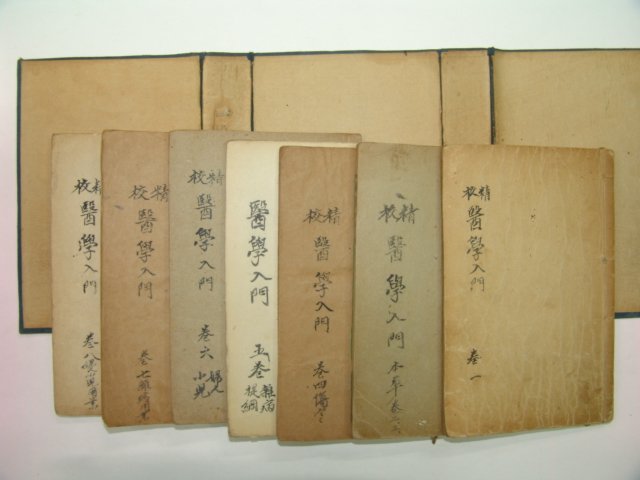 精校
醫學入門
卷一
精校
醫學入門
本草卷二六
精校
醫學入門
卷四傷寒
醫學入門
五卷
雜病
提綱
精校
醫學入門
卷六
婦人
小兒
精校
醫學入門
卷七
精校
醫學入門
卷八